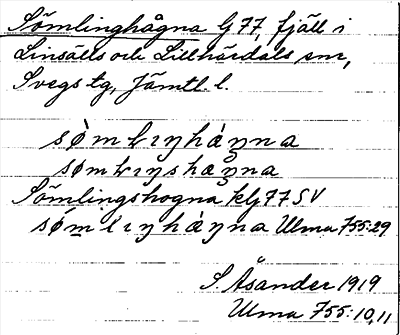 Sömlinghågna G77, fjäll i
Linsälls och Lillhärdals snr,
Svegs tg, Jämtl. l.
sò̀mlıŋháŋna
sømlıŋshaŋna
Sömlingshogna kG77SV
sómlıŋháŋna Ulma 755:29
S. Åsander 1919
Ulma 755:10,11